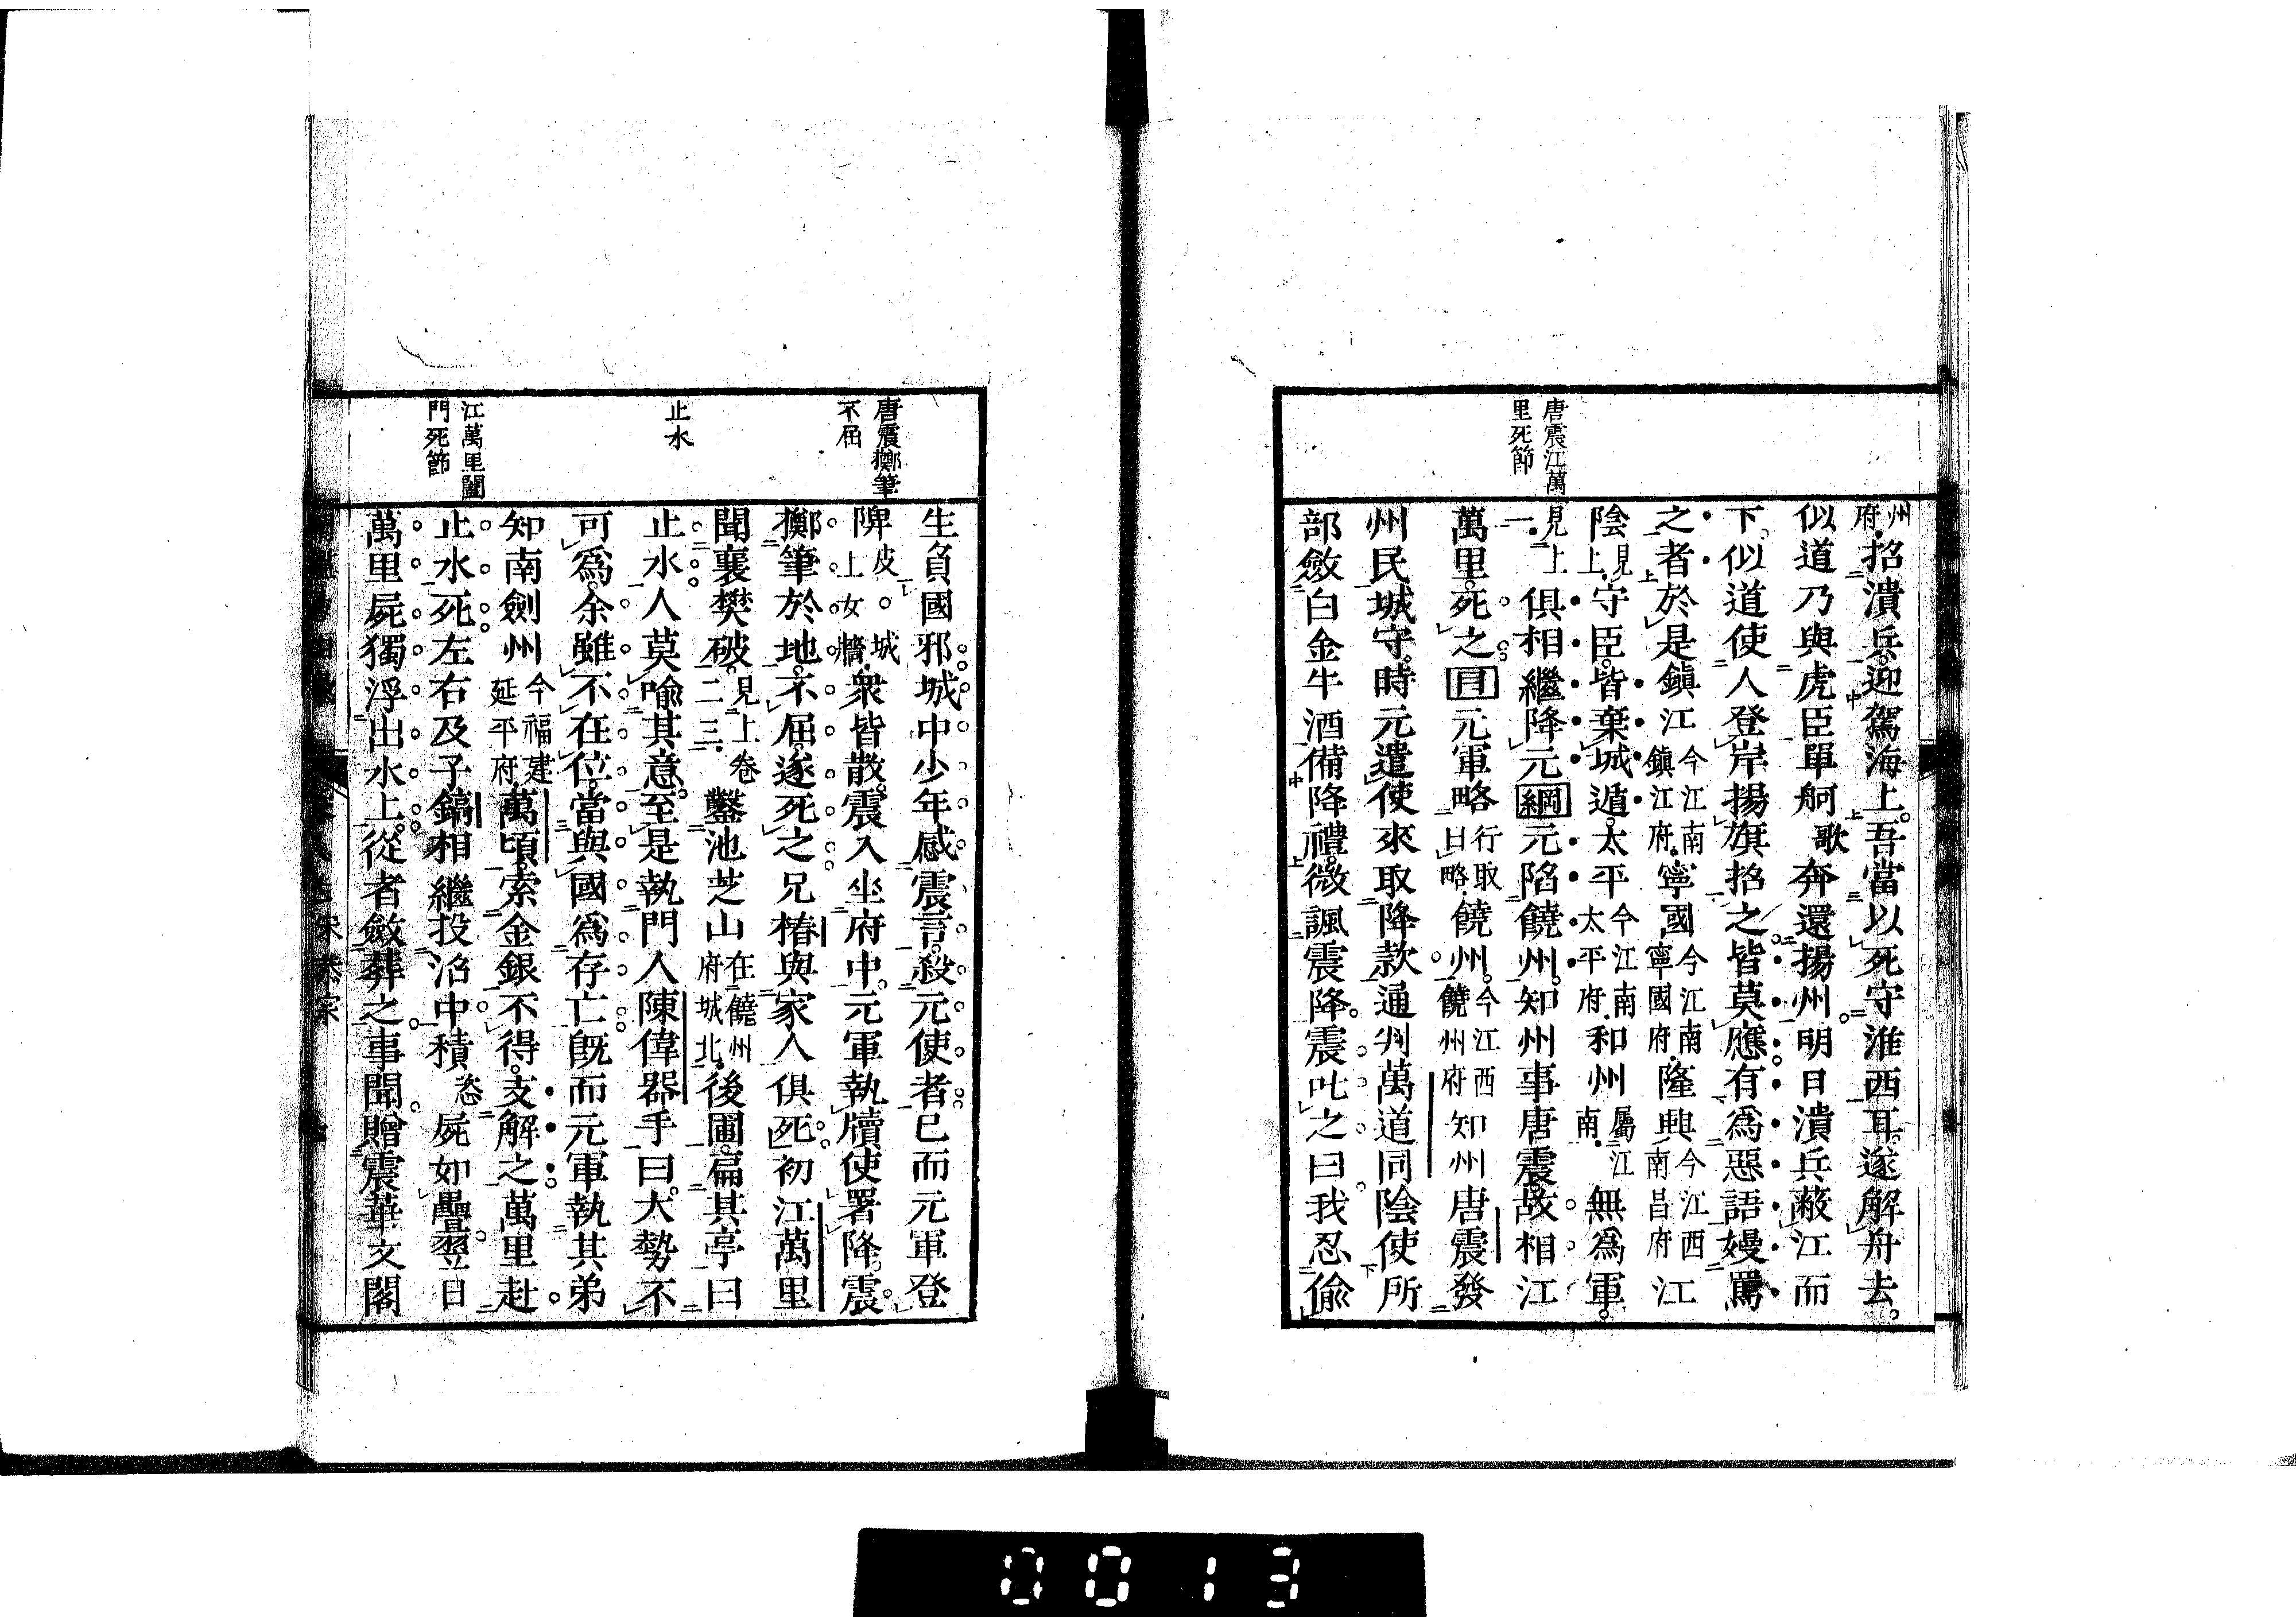 唐震江萬
里死節
州府招潰兵迎駕海上吾當以死守淮西耳遂解舟去
似道乃與虎臣單舸歌奔還揚州明日潰兵蔽江而
下似道使人登岸揚旗招之皆莫應有爲惡語嫚罵
之者於是鎭江今江南鎭江府寧國今江南寧國府隆興今江西南昌府江
陰見上守臣皆棄城遁太平今江南太平府和州屬江南無爲軍
見上一俱相繼降元綱元陷饒州知州事唐震故相江
萬里死之目元軍略行取曰略饒州今江西饒州府知州唐震發
州民城守時元遣使來取降款通判萬道同陰使所
部斂白金牛酒備降禮微諷震降震叱之曰我忍偷
唐震擲筆
不屈
止水
江萬里闔
門死節
生負國邪城中少年感震言殺元使者已而元軍登
陴皮上女城牆衆皆散震入坐府中元軍執牘使署降震
擲筆於地不屈遂死之兄椿與家人俱死初江萬里
聞襄樊破見上卷二三鑿池芝山在饒州府城北後圃扁其亭曰
止水人莫喩其意至是執門人陳偉器手曰大勢不
可爲余雖不在位當與國爲存亡旣而元軍執其弟
知南劍州今福建延平府萬頃索金銀不得支解之萬里赴
止水死左右及子鎬相繼投沼中積恣屍如疊翌日
萬里屍獨浮出水上從者斂葬之事聞贈震華文閣
0013